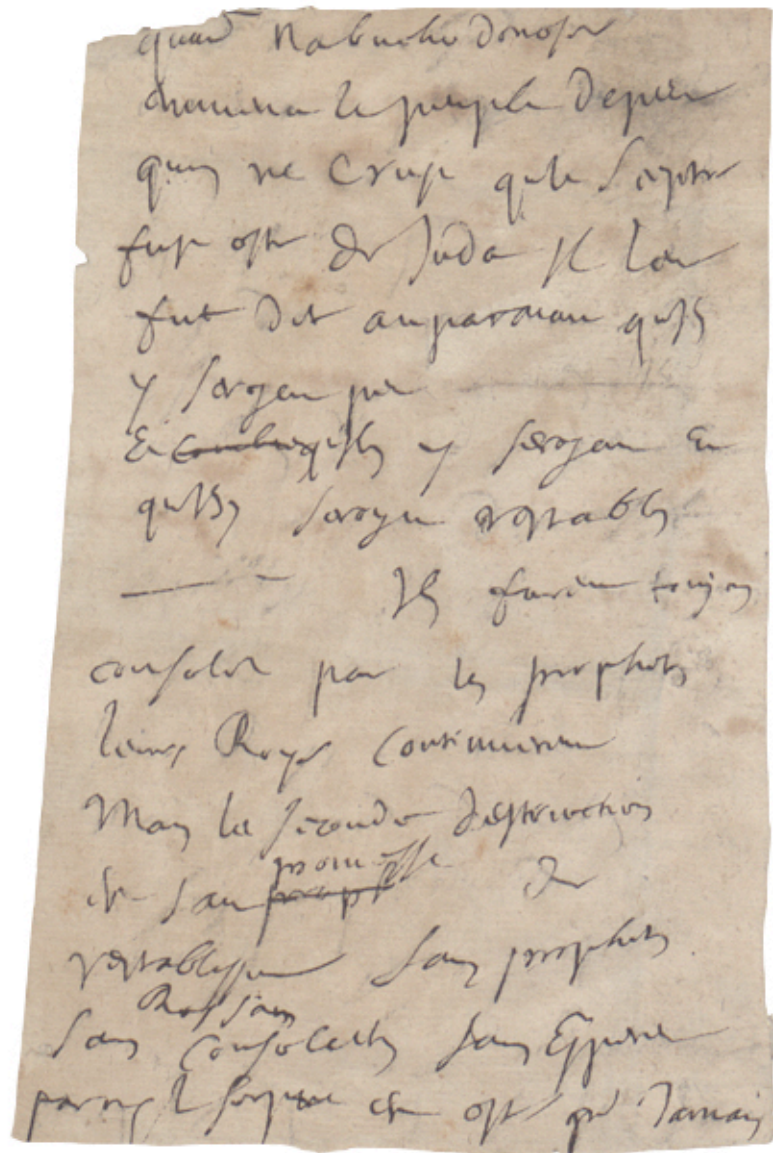 quand Nabuchodonosor
emmena le peuple de peur
quon ne crust que le sceptre
fust osté de Juda Il leur
fut dit auparavant quils
y seroyent peu
Et quils y seroyent Et
quils seroyent restablis
Ils furent toujours
consolés par les prophetes
leurs Roys continuerent
Mais la seconde destruction
est sans promesse de
restablissement sans prophetes
sans Roys sans
consolation sans Esperance
parce que le sceptre est osté pour Jamais